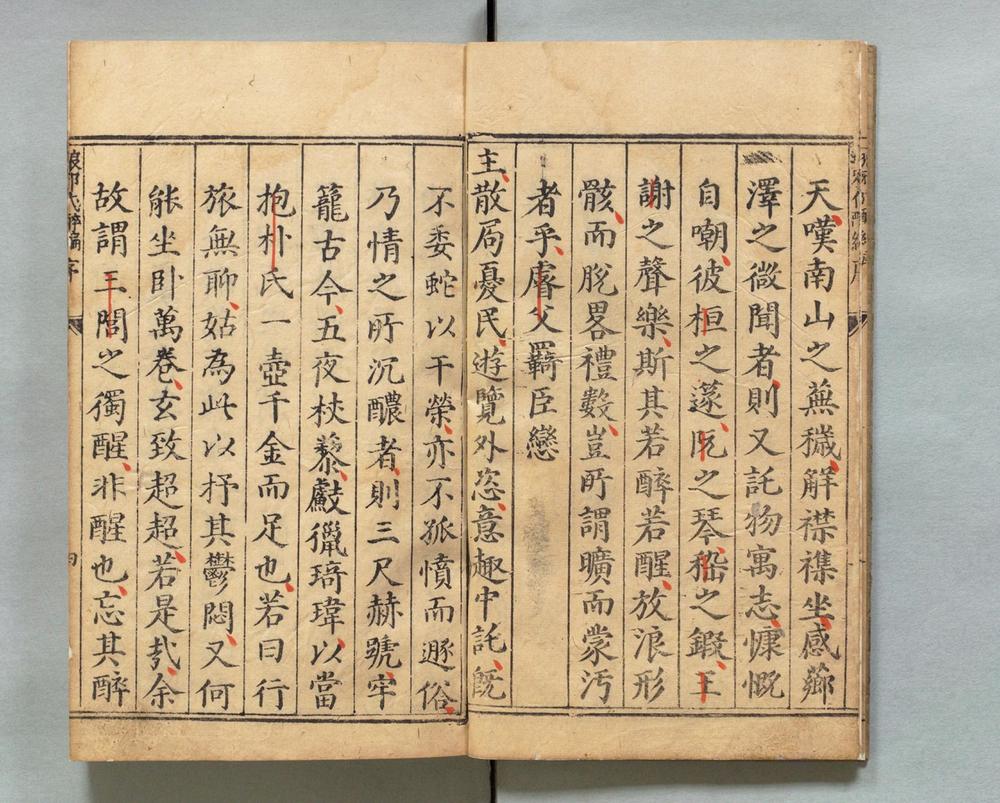 天嘆南山之蕪穢觧襟襍坐感薌
澤之微聞者則又託物寓志慷慨
自嘲彼桓之邃阮之琴嵇之鍜王
謝之聲樂斯其若醉若醒放浪形
骸而脫畧禮數豈所謂曠而蒙汚
者乎膚父羈臣戀
主散局憂民遊覽外恣意趣中託旣
不委蛇以干榮亦不孤憤而遯俗
乃情之所沉醲者則三尺赫號牢
籠古今五夜杖藜獻獵琦瑋以當
抱朴氏一壺千金而足也若曰行
旅無聊姑為此以抒其鬱悶又何
能坐卧萬卷玄致超超若是㢤余
故謂三閭之獨醒非醒也忘其醉